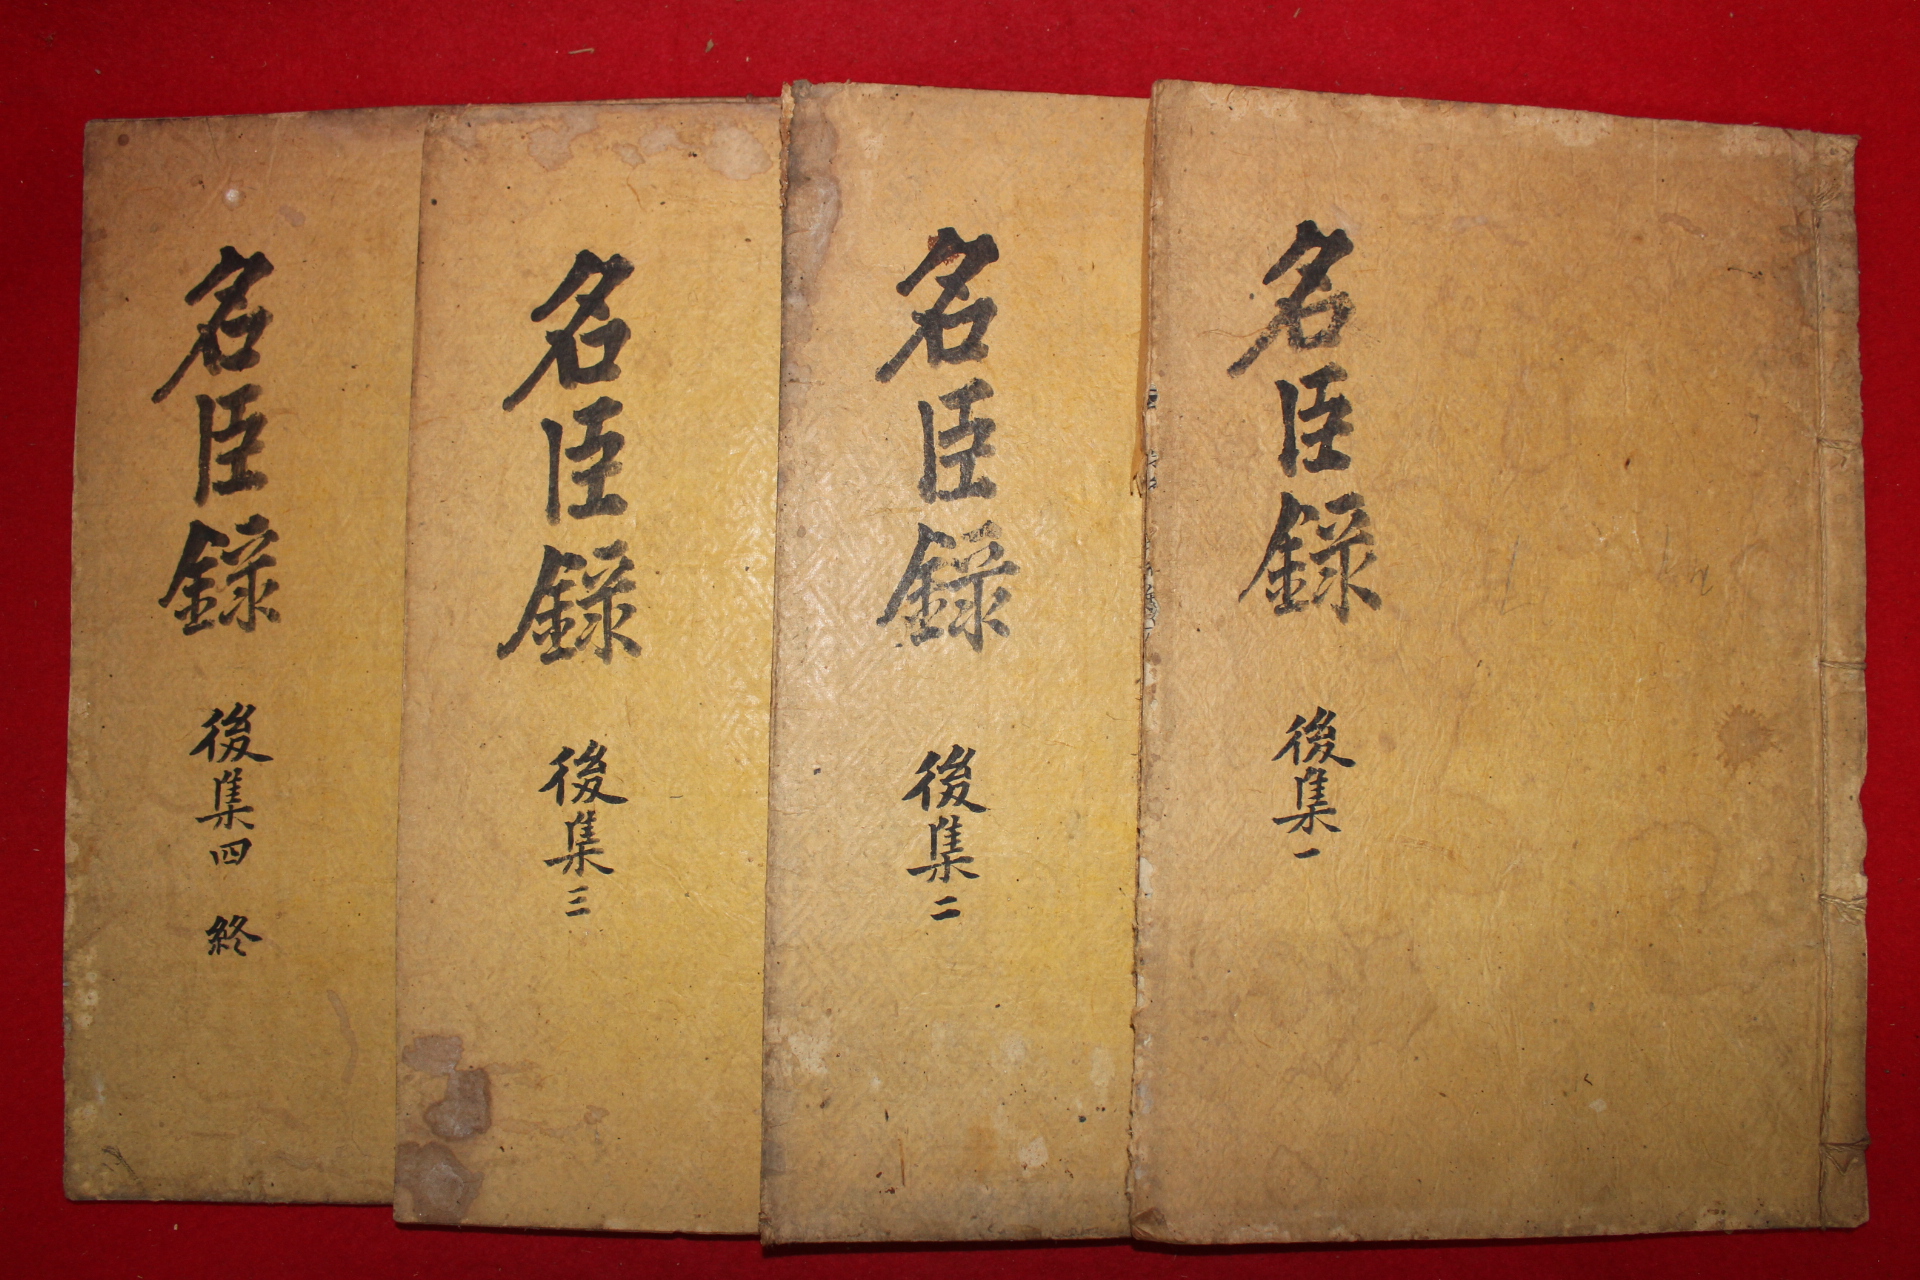 名臣錄 後集一
名臣錄 後集二
名臣錄 後集三
名臣錄 後集四 終